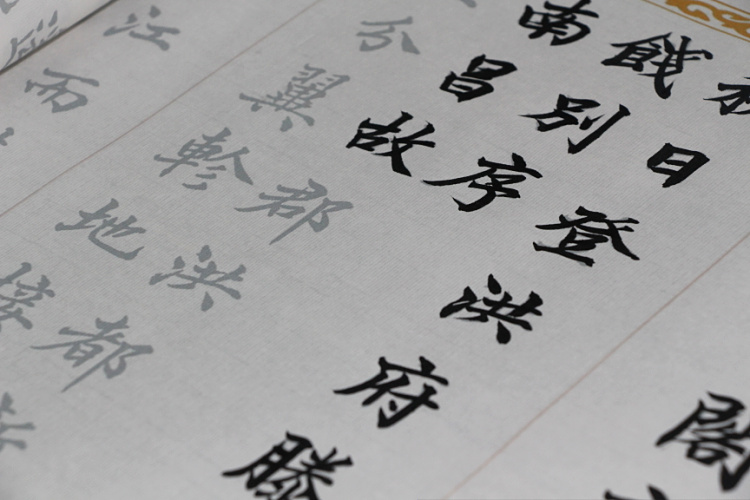 閣
日登洪府滕
餞別序
南昌故郡洪都
分翼軫地接
江而